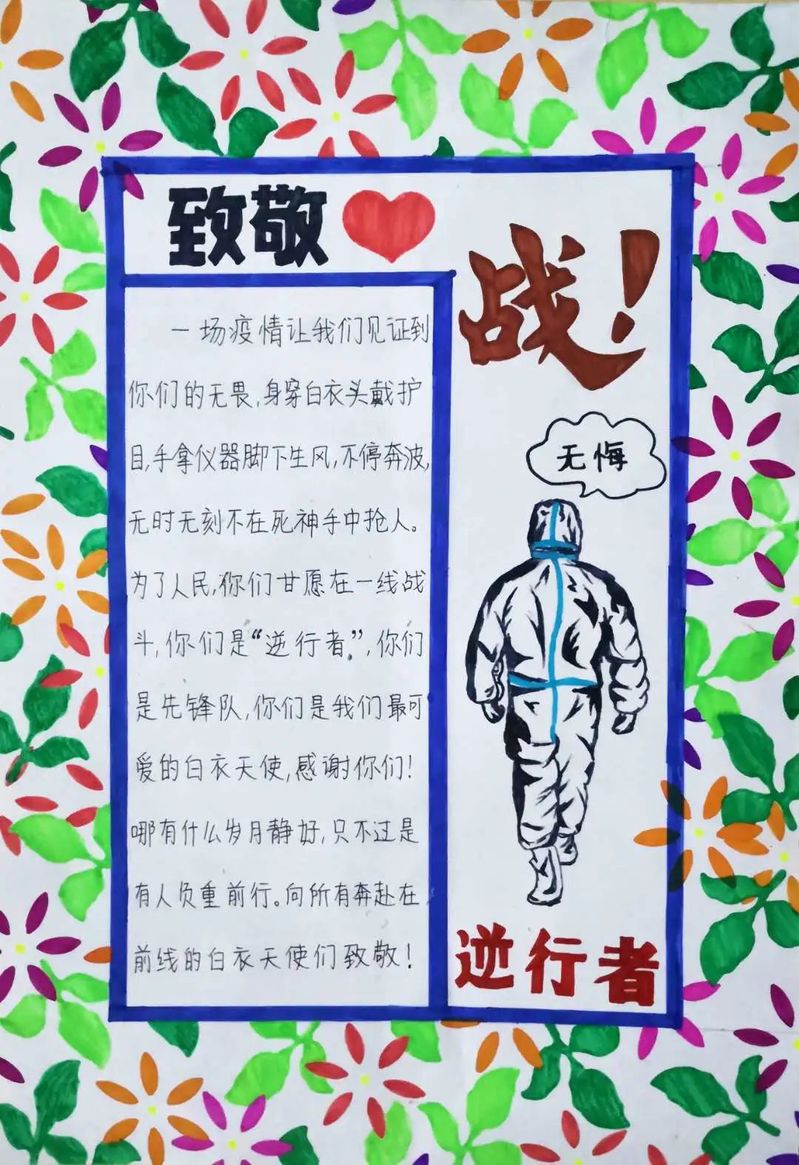 致敬
战！
一场疫情让我们见证到
你们的无畏,身穿白衣头戴护
目,手拿仪器脚下生风,不停奔波,
无时无刻不在死神手中抢人。
为了人民,你们甘愿在一线战
斗,你们是“逆行者”,你们
是先锋队,你们是我们最可
爱的白衣天使,感谢你们!
哪有什么岁月静好,只不过是
有人负重前行。向所有奔赴在
前线的白衣天使们致敬!
无悔
逆行者